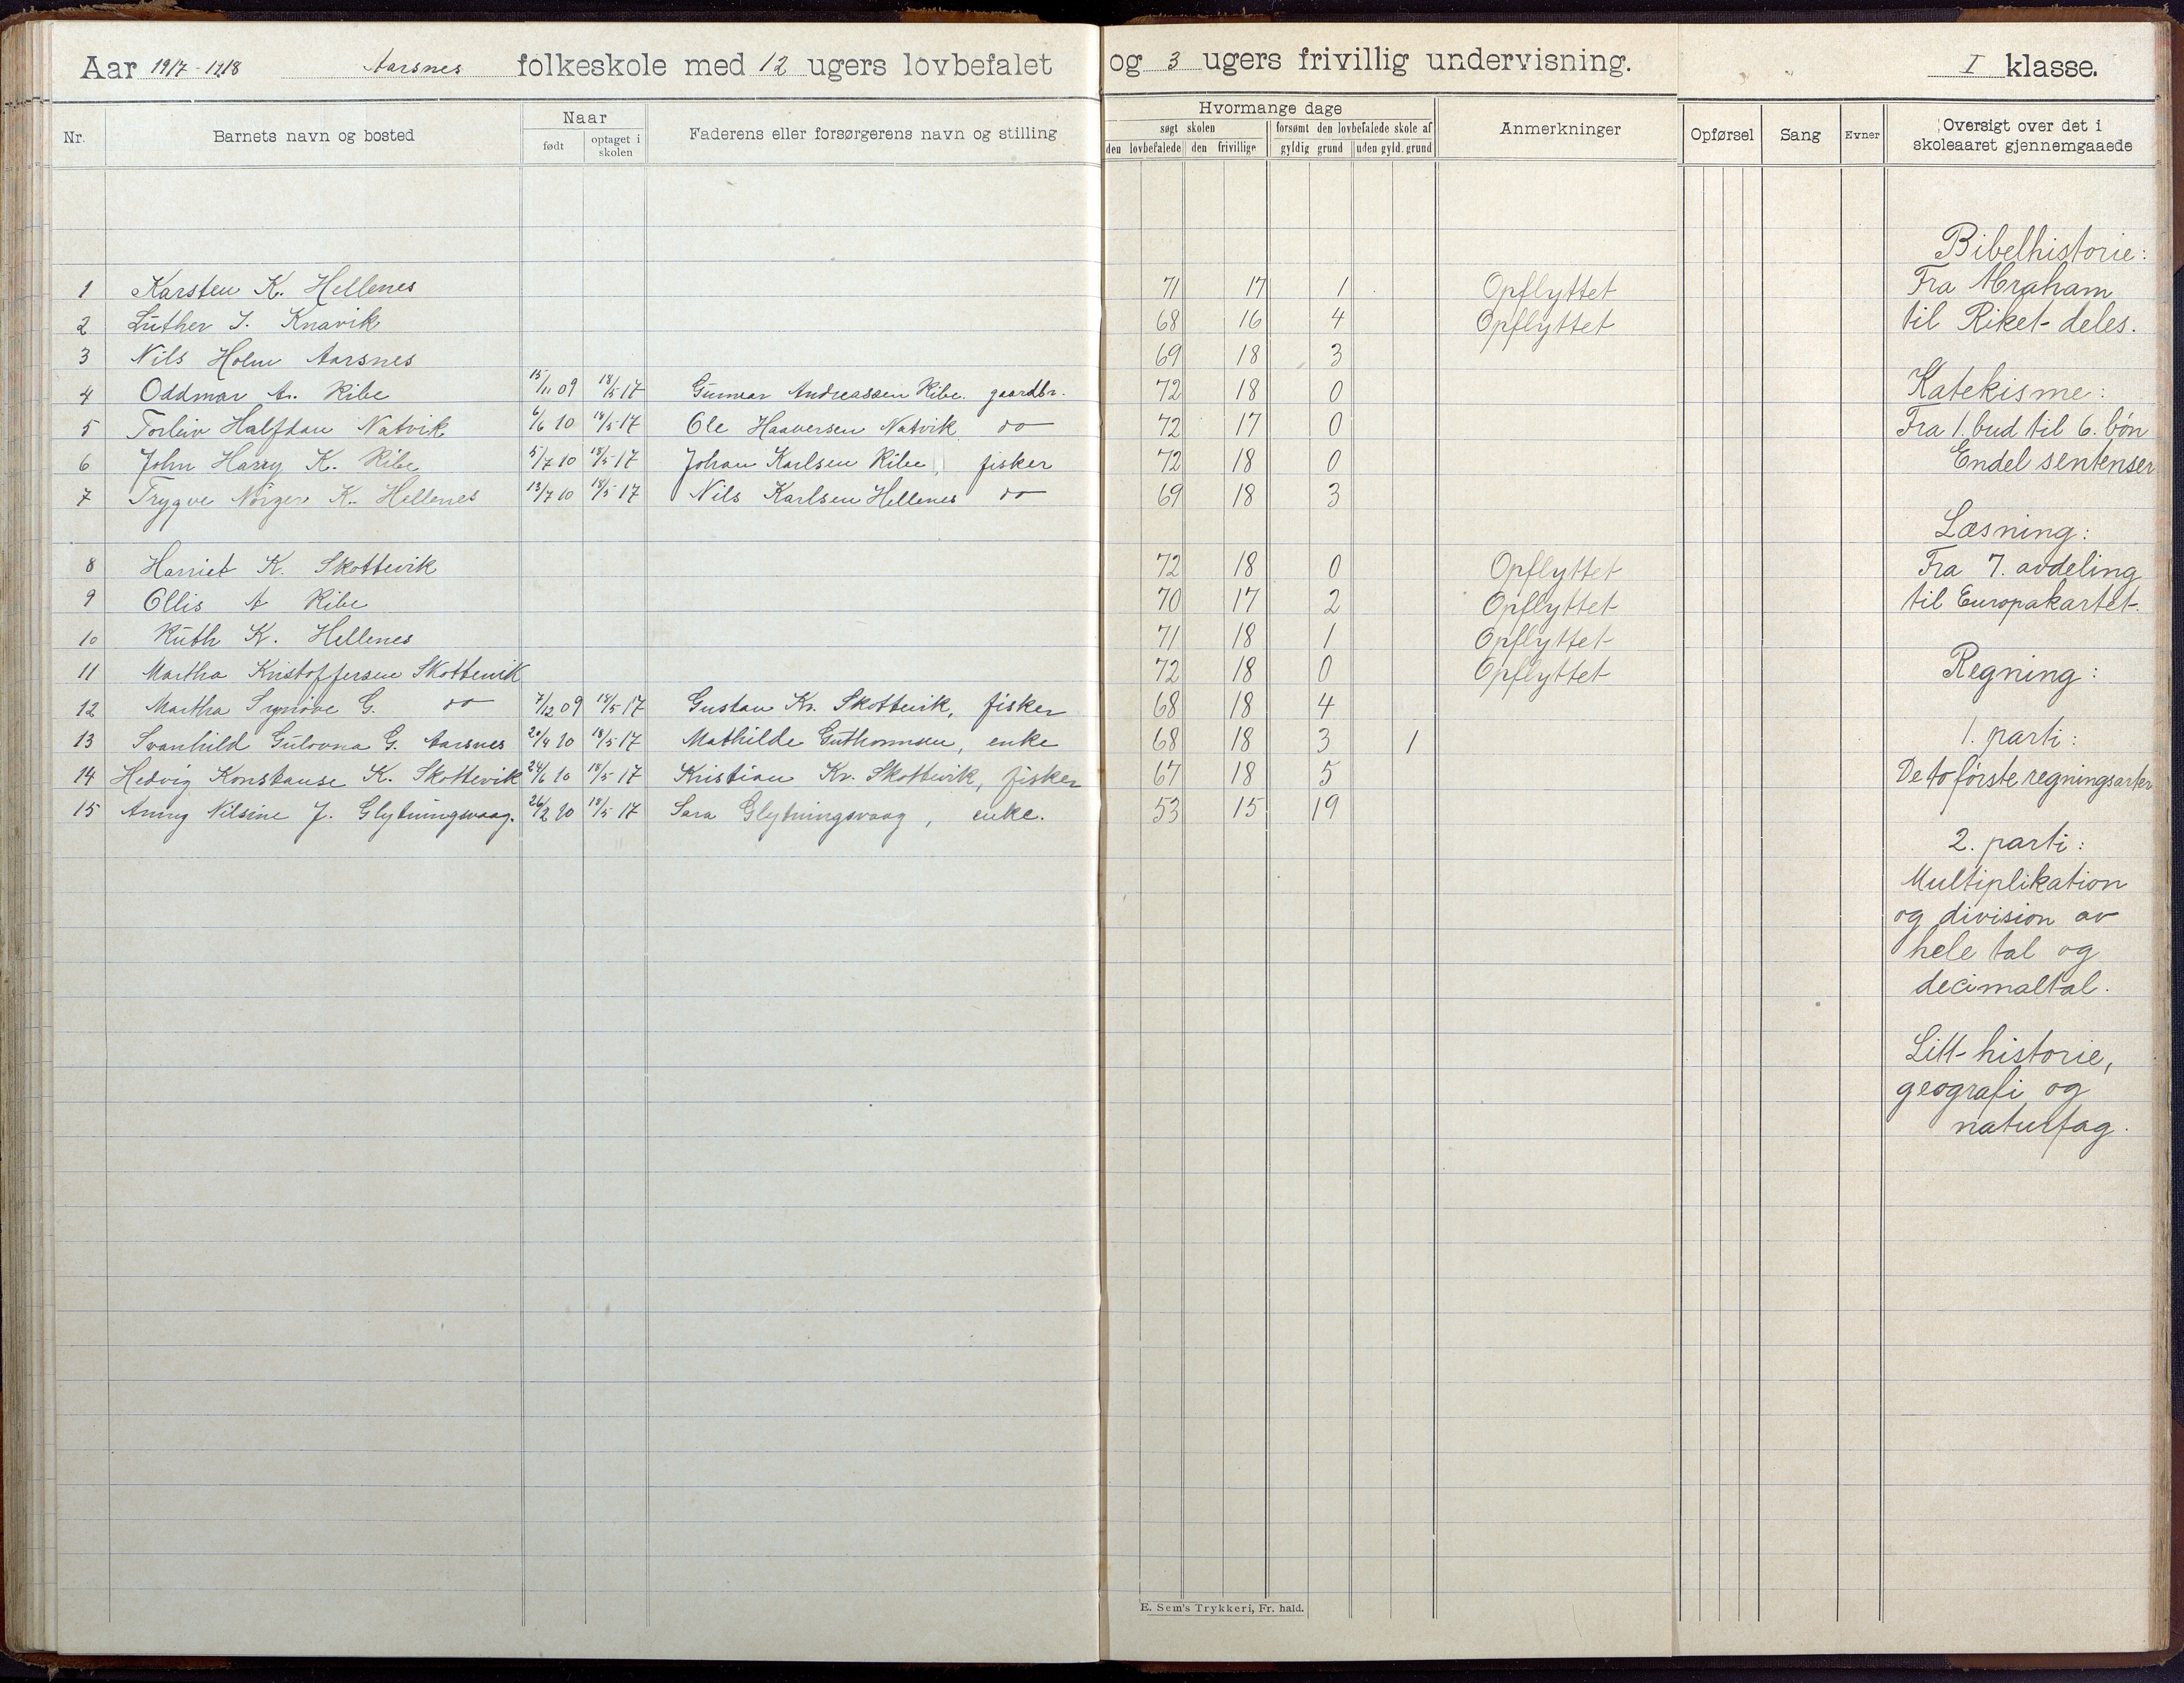 Aar 1917-1918 Aarsnes folkeskole med 12 ugers lovbefalet og 3 ugers frivillig undervisning. I klasse.
Nr. Barnets navn og bosted Naar født optaget i skolen Faderens eller forsørgerens navn og stilling Hvormange dage søgt skolen den lovbefalede den frivillige forsømt den lovbefalede skole af gyldig grund uden gyld. grund Anmerkninger Opførsel Sang Evner Oversigt over det i skoleaaret gjennemgaaede
1 Karsten K. Hellenes 71 17 1 Opflyttet
2 Luther J. Knavik 68 16 4 Opflyttet
3 Nils Holm Aarsnes 69 18 3
4 Oddmar A. Ribe 15/11 09 18/5 17 Gunnar Andreassen Ribe. gaardbr. 72 18 0
5 Torleiv Halfdan Natvik 6/6 10 18/5 17 Ole Haaversen Natvik do 72 17 0
6 John Harry K. Ribe 5/7 10 18/5 17 Johan Karlsen Ribe, fisker 72 18 0
7 Trygve K. Hellenes 13/7 10 18/5 17 Nils Karlsen Hellenes do 69 18 3
8 Harriet K. Skottevik 72 18 0 Opflyttet
9 Ollis A Ribe 70 17 2 Opflyttet
10 Ruth K. Hellenes 71 18 1 Opflyttet
11 Martha Kristoffersen Skottevik 72 18 0 Opflyttet
12 Martha Synøve G. do 7/12 09 18/5 17 Gustav Kr. Skottevik, fisker 68 18 4
13 Svanhild Gulovna G. Aarsnes 20/4 10 18/5 17 Mathilde Guthormsen, enke 68 18 3 1
14 Hedvig Konstanse K. Skottevik 24/6 10 18/5 17 Kristian Kr. Skottevik, fisker 67 18 5
15 Anny Nilsine J. Glytningsvaag. 26/2 10 18/5 17 Sara Glytningsvaag, enke. 53 15 19
Bibelhistorie:
Fra Abraham
til Riket deles.
Katekisme:
Fra 1. bud til 6. bøn
Endel sentenser
Læsning:
Fra 7. avdeling
til Europakartet.
Regning:
1. parti:
De to første regningsarter
2. parti:
Multiplikation
og division av
hele tal og
decimaltal.
Litt historie,
geografi og
naturfag.
E. Sem's Trykkeri, Fr. hald.